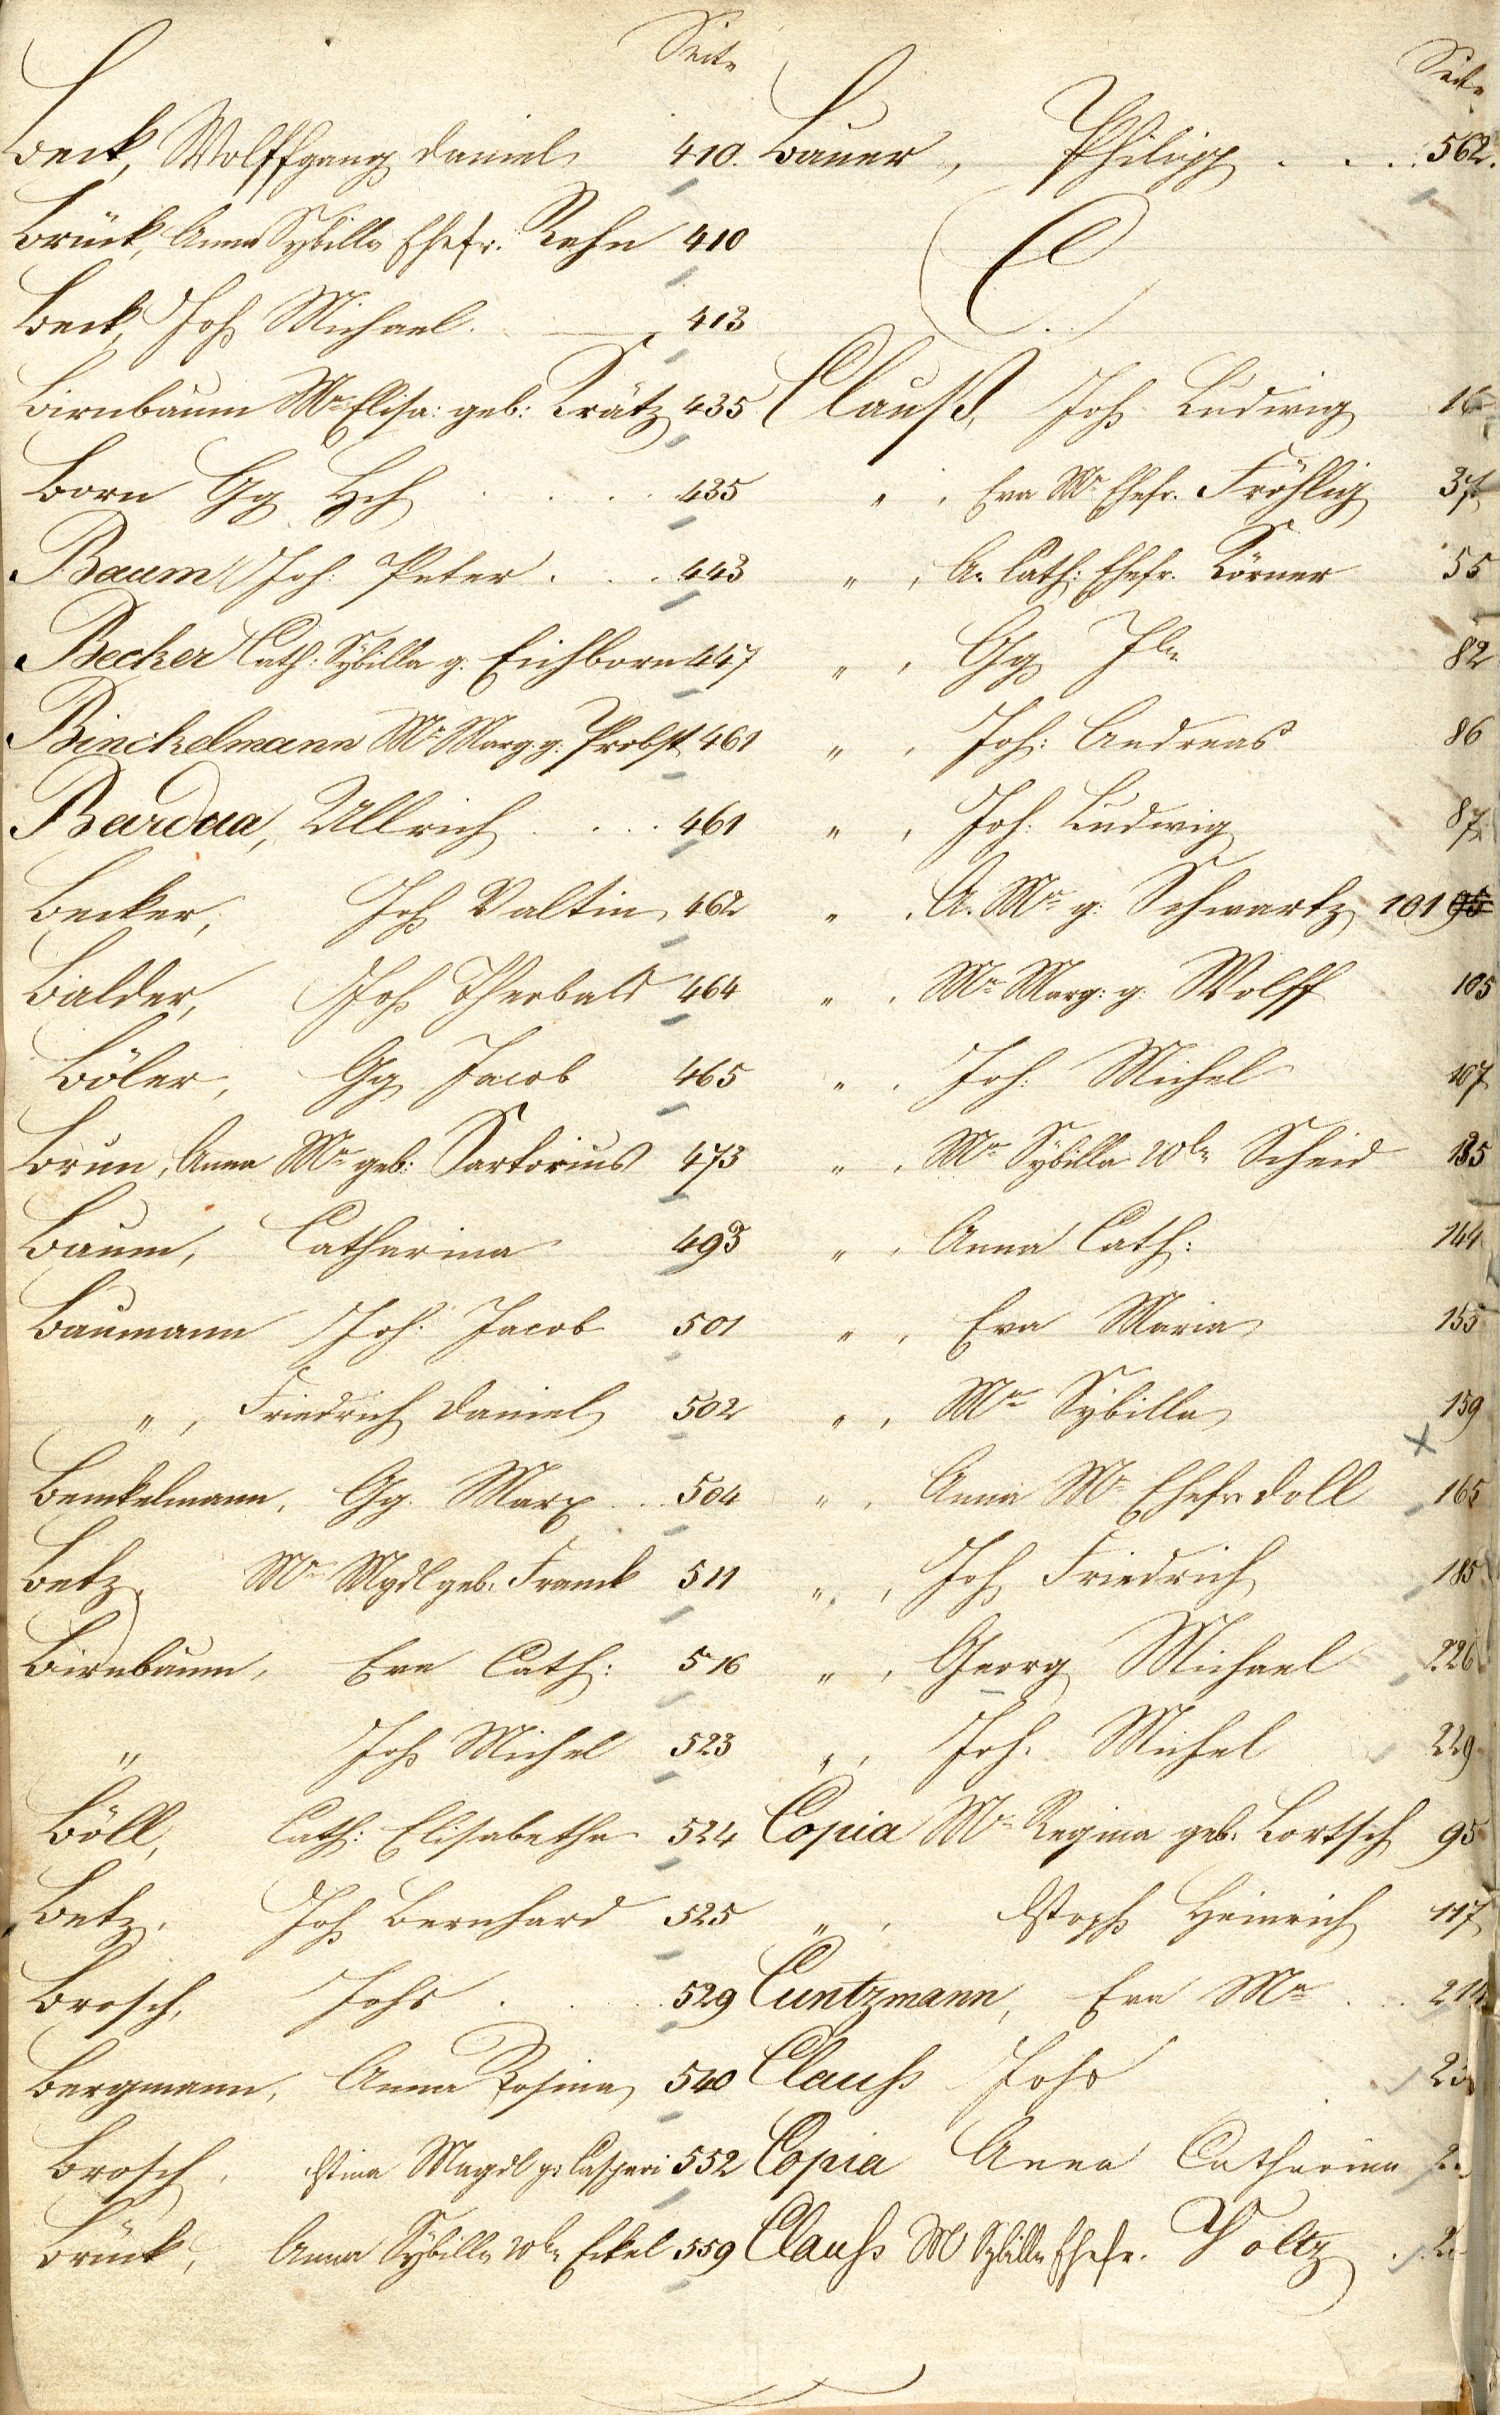 Seite
Beck, Wolffgang Daniel 410.
Brück, Anna Sybilla Ehefr. Rehn 410
Beck, Joh Michael. 413
Birnbaum Mr. Elisa: geb: Krätz 435
Born Gg Hch . . . . 435
Baum Joh: Peter . . . 443
Becker Cath: Sybilla g. Eichborn 447
Binckelmann Mr. Marg. g. Probst 461
Bardua, Ullrich . . . 461
Becker, Joh Valtin 462
Balder, Joh Theobald 464
Böler, Gg Jacob 465
Brun, Anna Mr geb: Sartorius 473
Baum, Catharina 493
Baumann Joh: Jacob 501
" , Friedrich Daniel 502
Benckelmann, Gg. Marx . . 504
Betz, Mr Mgdl geb. Franck 511
Birnbaum, Eva Cath: 516
" Joh Michel 523
Böll, Cath: Elisabetha 524
Betz, Joh Bernhard 525
Brosch, Johs . . . 529
Bergmann, Anna Rosina 540
Brosch, Stina Magdl g: Casperi 552
Brück, Anna Sybilla Wb. Eckel 559
Seite
Bauer, Philipp . . . 562.
C
Clauß, Joh Ludwig 16
" , Eva Mr Ehefr. Fröhlig 37
" , A. Cath: Ehefr. Körner 55
" , Gg 82
" , Joh: Andreas 86
" , Joh: Ludwig 87
" , A. Mr g: Schwartz 101 95
" , Mr Marg: g: Wolff 105
" , Joh: Michel 107
" , Mr Sybilla Wb. Scheid 135
" , Anna Cath: 144
" , Eva Maria 155
" , Mr Sybilla 159
" , Anna Mr Ehefr Doll 165
" , Joh Friedrich 185
" , Georg Michael 226
" , Joh. Michel 229
Copia Mr Regina geb. Bortsch 95
" , Stoph Heinrich 117
Cuntzmann, Eva Mr . . 214
Clauß Johs
Copia Anna Catharina
Clauß M Sybilla Ehefr. Voltz